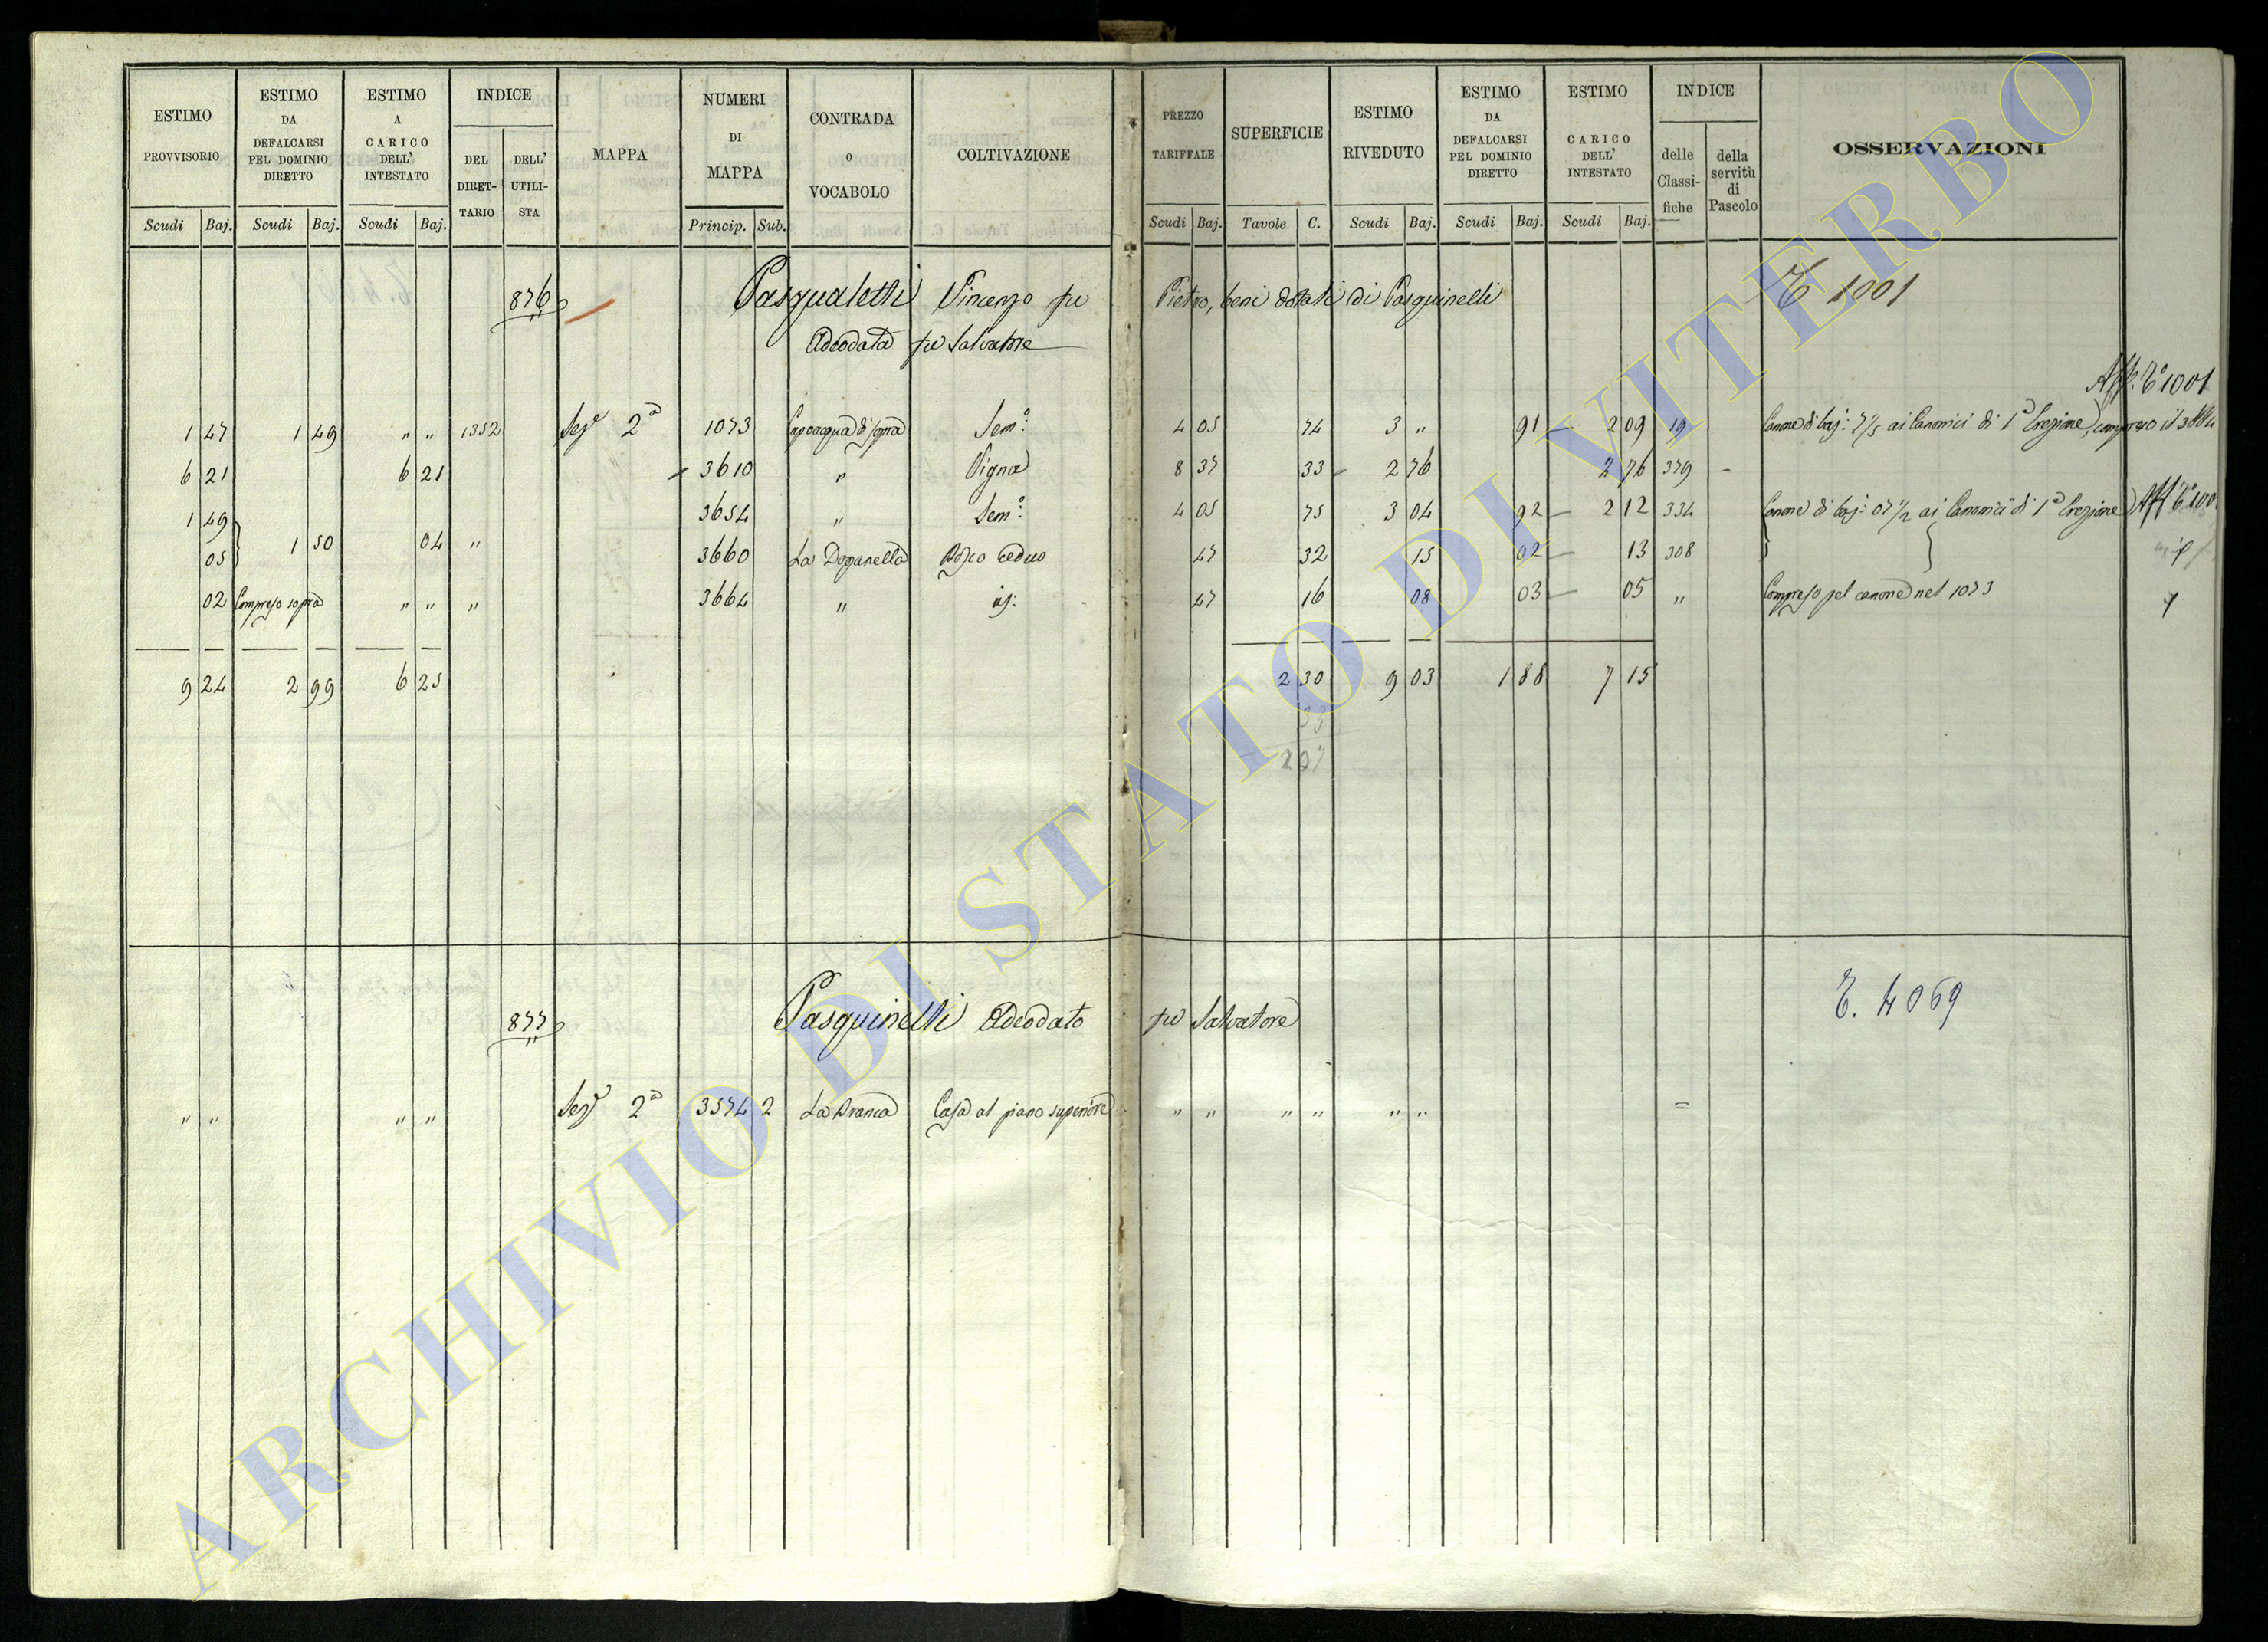 ESTIMO PROVVISORIO
ESTIMO DA DEFALCARSI PEL DOMINIO DIRETTO
ESTIMO A CARICO DELL' INTESTATO
INDICE
DEL DIRET-TARIO
DELL' UTILI-STA
MAPPA
NUMERI DI MAPPA
CONTRADA O VOCABOLO
COLTIVAZIONE
PREZZO TARIFFALE
SUPERFICIE
ESTIMO RIVEDUTO
ESTIMO DA DEFALCARSI PEL DOMINIO DIRETTO
ESTIMO CARICO DELL' INTESTATO
INDICE
delle Classi-fiche
della servitù di Pascolo
OSSERVAZIONI
Scudi Baj. Scudi Baj. Scudi Baj. Princip. Sub. Scudi Baj. Tavole C. Scudi Baj. Scudi Baj. Scudi Baj.
876 Pasqualetti Vincenzo fu Pietro, beni dotali di Pasquinelli 1001
Adeodata fu Salvatore
1001
1 47 1 49 " " 1352 Sez.e 2a 1073 Capoacqua di sopra Sem.o 4 05 74 3 " 91 2 09 19 Canone di baj: 7 1/5 ai Canonici di 1a Erezione, compreso il 3664
6 21 6 21 3610 " Vigna 8 37 33 2 76 2 76 379
1 49 3654 " Sem.o 4 05 75 3 04 92 2 12 334 Canone di baj: 07 1/2 ai Canonici di 1a Erezione
05 1 50 04 " 3660 La Doganella Bosco ceduo 47 32 15 02 13 308
02 Compreso sopra " " " 3664 " id: 47 16 08 03 05 " Compreso pel canone nel 1073
9 24 2 99 6 25 2 30 9 03 1 88 7 15
33
207
877 Pasquinelli Adeodato fu Salvatore 4069
" " " " Sez.e 2a 3574 2 La Branca Casa al piano superiore " " " " " " =
ARCHIVIO DI STATO DI VITERBO